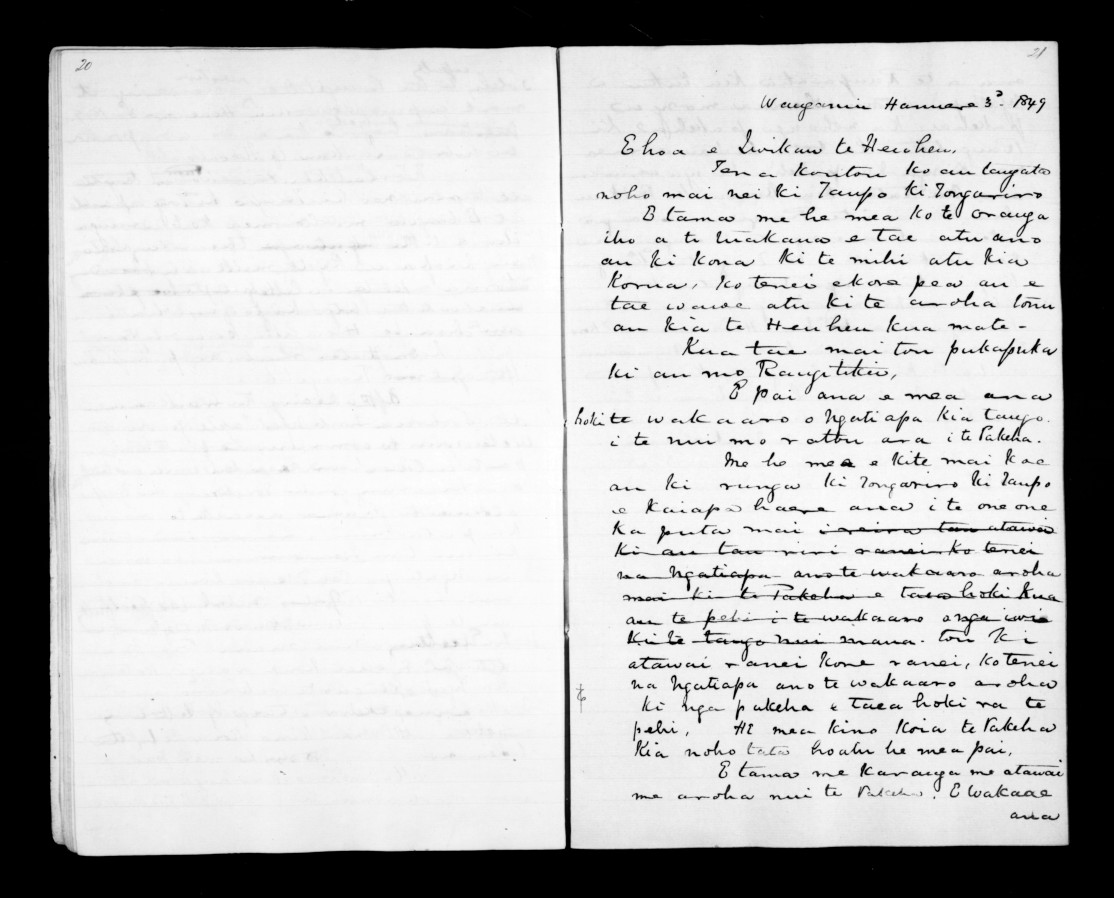 20
21
Wanganui Hanuere 3d. 1849
E hoa e Iwikau te Heuheu,
Tena koutou ko au tangata
noho mai nei ki Taupo ki Tongariro
E tama me he mea ko te oranga
iho a te Makawa e tae atu ano
au ki kona ki te mihi atu kia
Korua, ko tenei ekore pea au e
tae wawe atu ki te aroha tonu
au kia te Heuheu kua mate-
Kua tae mai tou pukapuka
ki au mo Rangitikei,
E pai ana e mea ana
hoki te wakaaro o Ngatiapa kia tango
i te nui mo ratou ara i te Pakeha.
Me he mea e kite mai koe
au ki runga ki Tongariro ki Taupo
e kaiapo haere ana i te oneone
ka puta mai i reira tau atawai
ki au tau riri ranei ko tenei
na Ngatiapa ano te wakaaro aroha
mai ki te Pakeha e taea hoki kua
au te pehi i te wakaaro o nga iwi
ki te tango nui mana. tou ki
atawai ranei kore ranei, ko tenei
na Ngatiapa ano te wakaaro aroha
ki nga pakeha e taea hoki ra te
pehi, He mea kino koia te Pakeha
kia noho tata hoatu he mea pai,
E tama me karanga me atawai
me aroha nui te Pakeha. E wakaae
ana